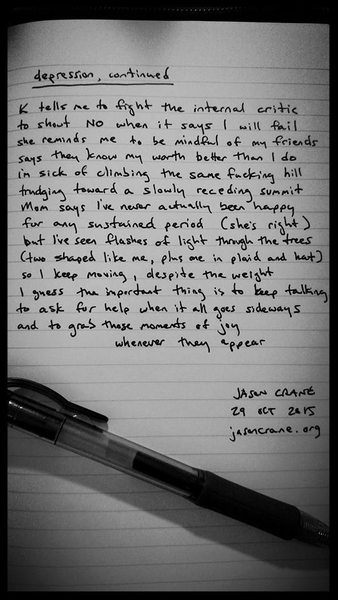 depression, continued
K tells me to fight the internal critic
to shout NO when it says I will fail
she reminds me to be mindful of my friends
says they know my worth better than I do
i'm sick of climbing the same fucking hill
trudging toward a slowly receding summit
Mom says I've never actually been happy
for any sustained period (she's right)
but I've seen flashes of light through the trees
(two shaped like me, plus me in plaid and hat)
so I keep moving, despite the weight
I guess the important thing is to keep talking
to ask for help when it all goes sideways
and to grab those moments of joy
whenever they appear
JASON CRANE
29 OCT 2015
jasoncrane.org